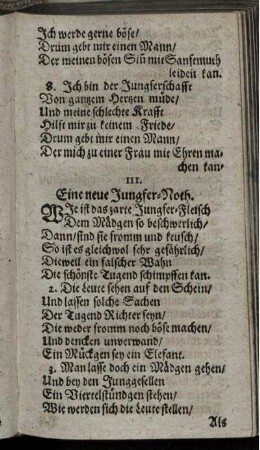 Ich werde gerne böse/
Drum gebt mir einen Mann/
Der meinen bösen Siñ mit Sanfemuth
leiden kan.
8. Ich bin der Jungferschafft
Von gantzem Hertzen müde/
Und meine schlechte Krafft
Hilft mir zu keinem Friede/
Drum gebt mir einen Mann/
Der mich zu einer Frau mit Ehren ma-
chen kan.
III.
Eine neue Jungfer-Noth.
WIe ist das zarte Jungfer-Fleisch
Dem Mädgen so beschwerlich/
Dann/sind sie fromm und keusch/
So ist es gleichwol sehr gefährlich/
Dieweil ein falscher Wahn
Die schönste Tugend schimpffen kan.
2. Die Leute sehen auf den Schein/
Und lassen solche Sachen
Der Tugend Richter seyn/
Die weder fromm noch böse machen/
Und dencken unverwand/
Ein Mückgen sey ein Elefant.
3. Man lasse doch ein Mädgen gehen/
Und bey den Junggesellen
Ein Viertelstündgen stehen/
Wie werden sich die Leute stellen/
Als